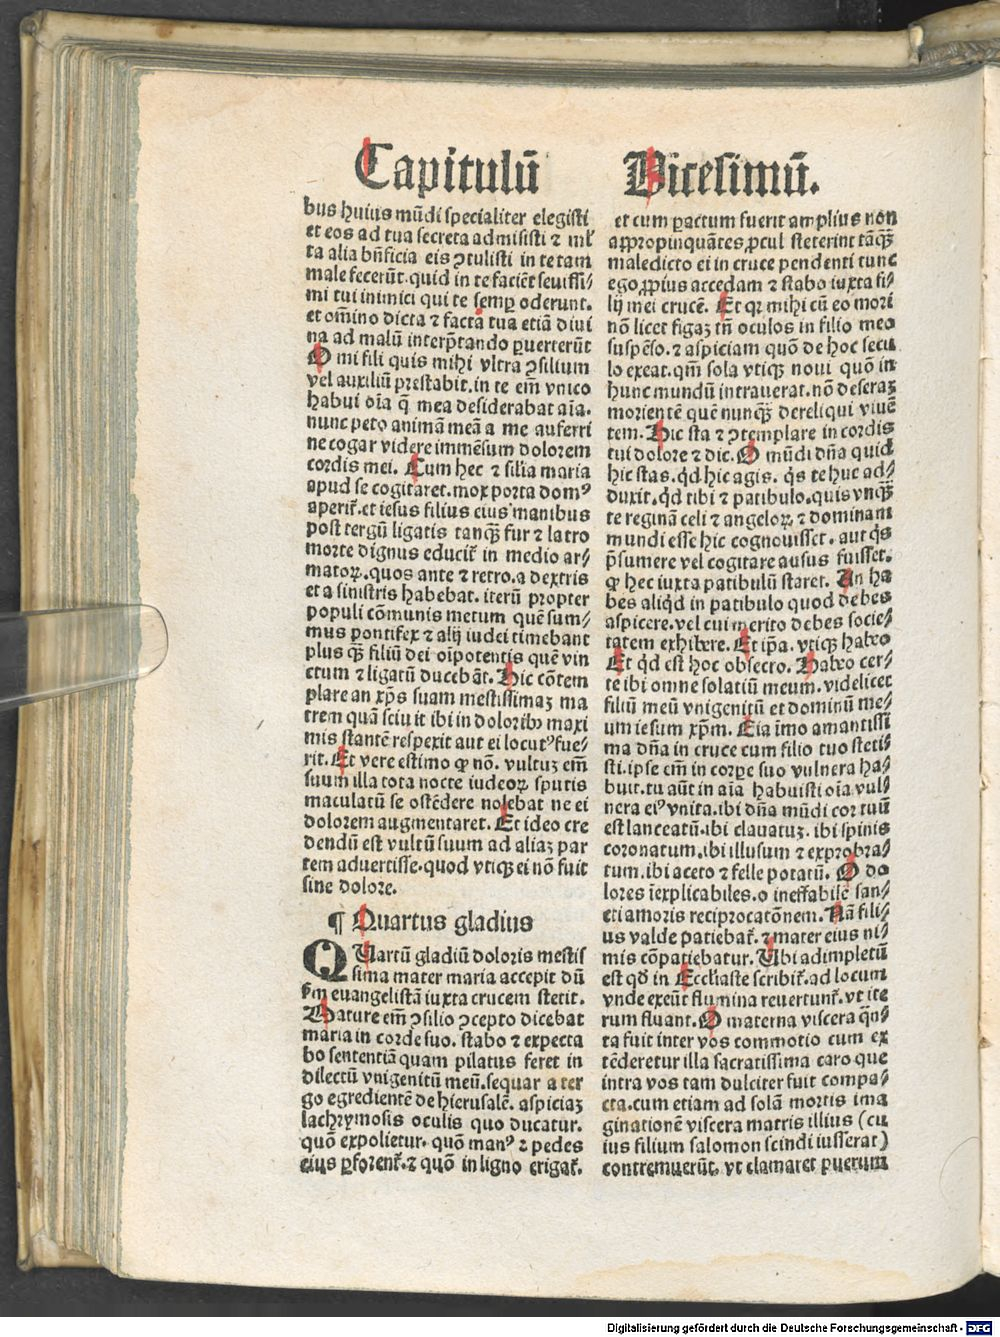 Capitulū Vicesimū.
bus huius mūdi specialiter elegisti
et eos ad tua secreta admisisti ⁊ ml̓
ta alia bñficia eis ꝯtulisti in te tam
male fecerūt. quid in te faciēt seuissi⸗
mi tui inimici qui te semꝑ oderunt.
et oīmno dicta ⁊ facta tua etiā diui
na ad malū interp̄tando ꝑuerterūt
O mi fili quis mihi vltra ꝯsilium
vel auxiliū prestabit. in te em̄ vnico
habui oīa q̄ mea desiderabat aīa.
nunc peto animā meā a me auferri
ne cogar videre immēsum dolorem
cordis mei. Cum hec ⁊ silīa maria
apud se cogitaret. mox porta domꝰ
aperit̄. et iesus filius eius manibus
post tergū ligatis tanqꝫ fur ⁊ latro
morte dignus educit̄ in medio ar⸗
matoꝝ. quos ante ⁊ retro. a dextris
et a sinistris habebat. iterū propter
populi cōmunis metum quē sum⸗
mus pontifex ⁊ alij iudei timebant
plus qꝫ filiū dei oīpotentis quē vin
ctum ⁊ ligatū ducebāt. Hic cōtem
plare an xp̄s suam mestissimaꝫ ma
trem quā sciuit ibi in doloribꝰ maxi
mis stantē respexit aut ei locutꝰ fue⸗
rit. Et vere estimo ꝙ nō. vultuꝫ em̄
suum illa tota nocte iudeoꝝ sputis
maculatū se ostēdere nolebat ne ei
dolorem augmentaret. Et ideo cre
dendū est vultū suum ad aliaꝫ par
tem aduertisse. quod vtiqꝫ ei nō fuit
sine dolore.
¶ Quartus gladius
QUartū gladiū doloris mestis
sima mater maria accepit dū
ẜm euangelistā iuxta crucem stetit.
Mature em̄ ꝯsilio ꝯcepto dicebat
maria in corde suo. stabo ⁊ expecta
bo sententiā quam pilatus feret in
dilectū vnigenitū meū. sequar a ter
go egredientē de hierusalē. aspiciaꝫ
lachrymosis oculis quo ducatur.
quō expolietur. quō manꝰ ⁊ pedes
eius ꝑforent̄. ⁊ quō in ligno erigat̄.
et cum ꝑactum fuerit amplius non
appropinquātes ꝓcul steterint tāqꝫ
maledicto ei in cruce pendenti tunc
ego ꝓpius accedam ⁊ stabo iuxta fi⸗
lij mei crucē. Et qꝛ mihi cū eo mori
nō licet figaꝫ tn̄ oculos in filio meo
suspēso. ⁊ aspiciam quō de hoc secu
lo exeat. qm̄ sola vtiqꝫ noui quō in
hunc mundū intrauerat. nō deseraꝫ
morientē quē nunqꝫ dereliqui viuē
tem. Hic sta ⁊ ꝯtemplare in cordis
tui dolore ⁊ dic. O mūdi dn̄a quid
hic stas. qd̓ hic agis. q̓s te huc ad⸗
duxit. qd̓ tibi ⁊ patibulo. quis vnqꝫ
te reginā celi ⁊ angeloꝝ ⁊ dominam
mundi esse hic cognouisset. aut q̓s
p̄sumere vel cogitare ausus fuisset.
ꝙ hec iuxta patibulū staret. An ha
bes aliqd̓ in patibulo quod debes
aspicere. vel cui merito debes socie⸗
tatem exhibere. Et ip̄a. vtiqꝫ habeo
Et qd̓ est hoc obsecro. Habeo cer⸗
te ibi omne solatiū meum. videlicet
filiū meū vnigenitū et dominū me⸗
um iesum xp̄m. Eia īmo amantissi
ma dn̄a in cruce cum filio tuo steti⸗
sti. ipse em̄ in corꝑe suo vulnera ha⸗
buit. tu aūt in aīa habuisti oīa vul⸗
nera eiꝰ vnita. ibi dn̄a mūdi cor tuū
est lanceatū. ibi clauatuꝫ. ibi spinis
coronatum. ibi illusum ⁊ exprobra⸗
tum. ibi aceto ⁊ felle potatū. O do
lores īexplicabiles. o ineffabilē san⸗
cti amoris reciprocatōnem. Nā fili⸗
us valde patiebat̄. ⁊ mater eius ni⸗
mis cōpatiebatur. Ubi adimpletū
est qd̓ in Eccliaste scribit̄. ad locum
vnde exeūt flumina reuertunt̄. vt ite
rum fluant. O materna viscera q̄n⸗
ta fuit inter vos commotio cum ex
tēderetur illa sacratissima caro que
intra vos tam dulciter fuit compa⸗
cta. cum etiam ad solā mortis ima
ginationē viscera matris illius (cu
ius filium salomon scindi iusserat)
contremuerūt. vt clamaret puerum
Digitalisierung gefördert durch die Deutsche Forschungsgemeinschaft - DFG